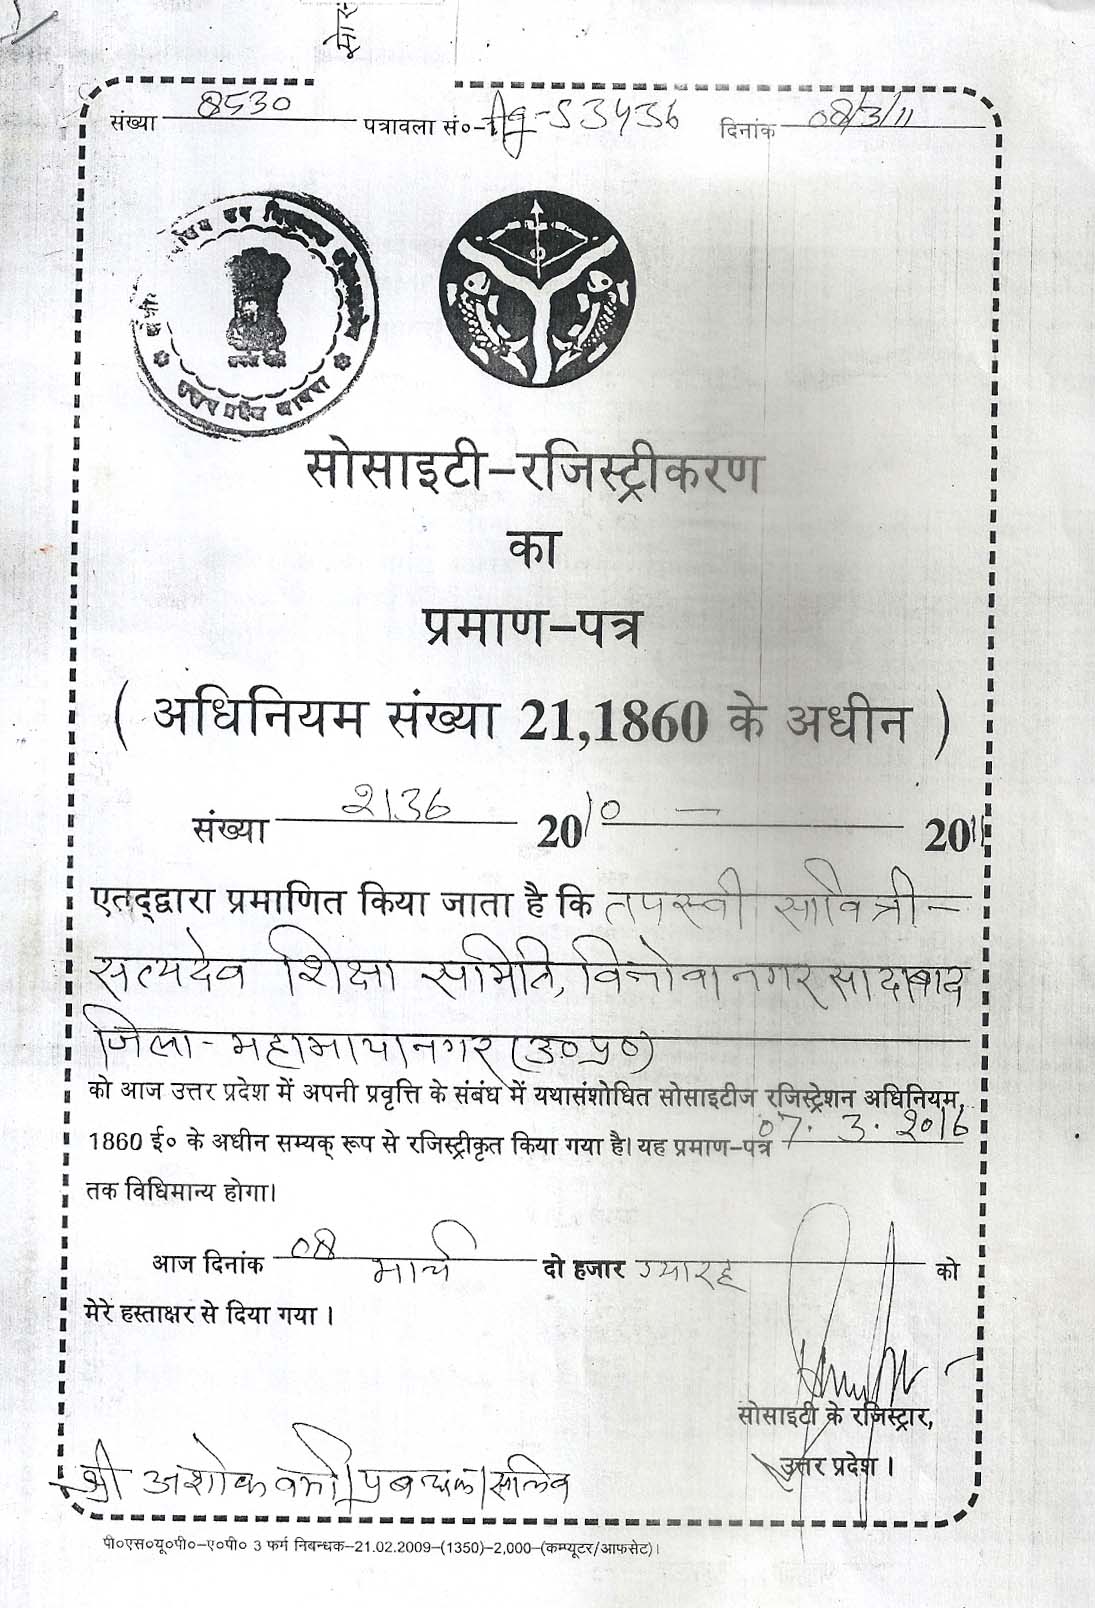 संख्या 8530 पत्रावला सं०- Ag-53436 दिनांक 08/3/11
उत्तर प्रदेश आगरा
सोसाइटी-रजिस्ट्रीकरण
का
प्रमाण-पत्र
( अधिनियम संख्या 21,1860 के अधीन )
संख्या २136 2010 - 2011
एतद्द्वारा प्रमाणित किया जाता है कि तपस्वी सावित्री-
सत्यदेव शिक्षा समिति, विनोवा नगर सादाबाद
जिला- महामायानगर (उ०प्र०)
को आज उत्तर प्रदेश में अपनी प्रवृत्ति के संबंध में यथासंशोधित सोसाइटीज रजिस्ट्रेशन अधिनियम,
1860 ई० के अधीन सम्यक् रूप से रजिस्ट्रीकृत किया गया है। यह प्रमाण-पत्र 07.3.२016
तक विधिमान्य होगा।
आज दिनांक 08 मार्च दो हजार ग्यारह को
मेरे हस्ताक्षर से दिया गया ।
सोसाइटी के रजिस्ट्रार,
उत्तर प्रदेश ।
श्री अशोक वर्मा/प्रबन्धक/सचिव
पी०एस०यू०पी०-ए०पी० 3 फर्म निबन्धक-21.02.2009-(1350)-2,000-(कम्प्यूटर/आफसेट)।